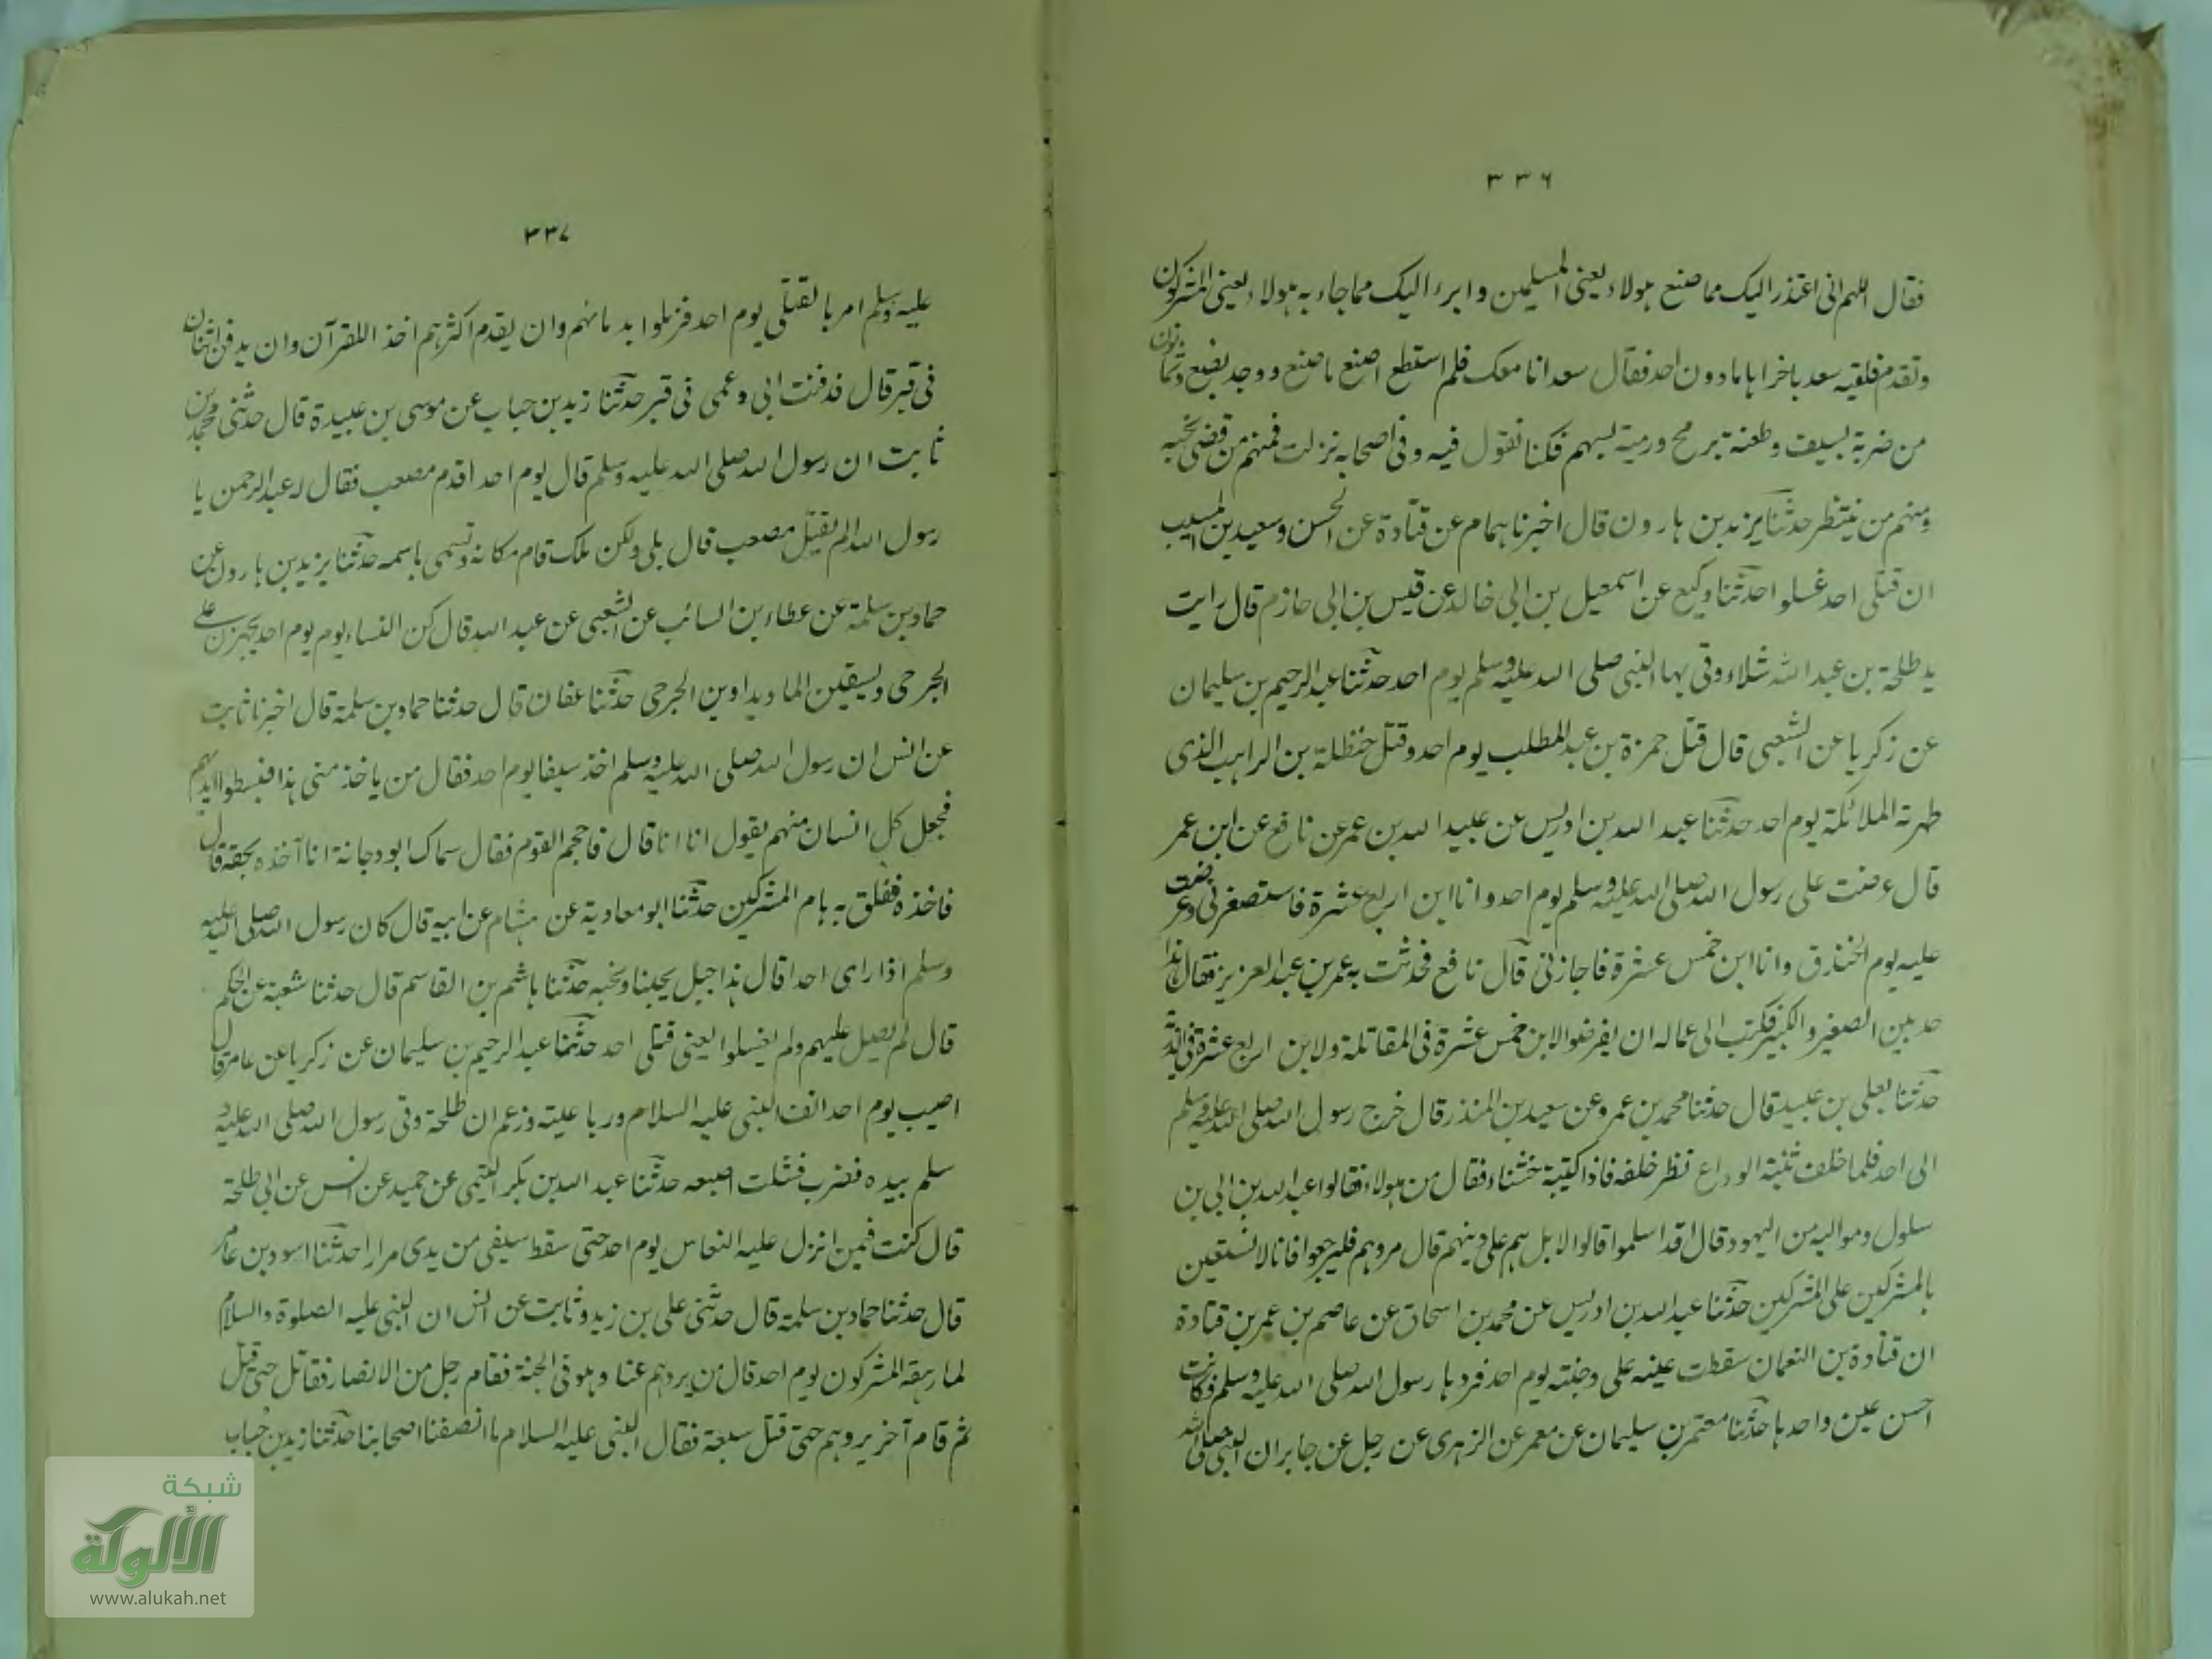 ٣٣٦
فقال اللهم انى اعتذر اليك مما صنع هولاء يعنى المسلمين وابرء اليك مما جاء به هولاء يعنى المشركون
وتقدم فلقيه سعد باخراها ما دون احد فقال سعد انا معك فلم استطع اصنع ما صنع ووجد بضع وثمانون
من ضربة بسيف وطعنة برمح ورمية بسهم فكنا نقول فيه وفى اصحابه نزلت فمنهم من قضى نحبه
ومنهم من ينتظر حدثنا يزيد بن هارون قال اخبرنا همام عن قتادة عن الحسن وسعيد بن المسيب
ان قتلى احد غسلوا حدثنا وكيع عن اسمعيل بن ابى خالد عن قيس بن ابى حازم قال رايت
يد طلحة بن عبد الله شلاء وقى بها النبى صلى الله عليه وسلم يوم احد حدثنا عبد الرحيم بن سليمان
عن زكريا عن الشعبى قال قتل حمزة بن عبد المطلب يوم احد وقتل حنظلة بن الراهب الذى
طهرته الملائكة يوم احد حدثنا عبد الله بن ادريس عن عبيد الله بن عمر عن نافع عن ابن عمر
قال عرضت على رسول الله صلى الله عليه وسلم يوم احد وانا ابن اربع عشرة فاستصغرنى وعرضت
عليه يوم الخندق وانا ابن خمس عشرة فاجازنى قال نافع فحدثت به عمر بن عبد العزيز فقال هذا
حد بين الصغير والكبير فكتب الى عماله ان يفرضوا لابن خمس عشرة فى المقاتلة ولابن اربع عشرة فى الذرية
حدثنا يعلى بن عبيد قال حدثنا محمد بن عمرو عن سعيد بن المنذر قال خرج رسول الله صلى الله عليه وسلم
الى احد فلما خلف ثنية الوداع نظر خلفه فاذا كتيبة خشناء فقال من هولاء فقالوا عبد الله بن ابى بن
سلول ومواليه من اليهود قال اقد اسلموا قالوا لا بل هم على دينهم قال مروهم فليرجعوا فانا لا نستعين
بالمشركين على المشركين حدثنا عبد الله بن ادريس عن محمد بن اسحاق عن عاصم بن عمر بن قتادة
ان قتادة بن النعمان سقطت عينه على وجنته يوم احد فردها رسول الله صلى الله عليه وسلم فكانت
احسن عين واحدها حدثنا معتمر بن سليمان عن معمر عن الزهرى عن رجل عن جابر ان النبى صلى الله
٣٣٧
عليه وسلم امر بالقتلى يوم احد فزملوا بدمائهم وان يقدم اكثرهم اخذ اللقرآن وان يدفن اثنان
فى قبر قال فدفنت ابى وعمى فى قبر حدثنا زيد بن حباب عن موسى بن عبيدة قال حدثنى محمد بن
ثابت ان رسول الله صلى الله عليه وسلم قال يوم احد اقدم مصعب فقال له عبد الرحمن يا
رسول الله الم يقتل مصعب قال بلى ولكن ملك قام مكانه وتسمى باسمه حدثنا يزيد بن هارون عن
حماد بن سلمة عن عطاء بن السائب عن الشعبى عن عبد الله قال كن النساء يوم يوم احد يجهزن على
الجرحى ويسقين الما ويداوين الجرحى حدثنا عفان قال حدثنا حماد بن سلمة قال اخبرنا ثابت
عن انس ان رسول الله صلى الله عليه وسلم اخذ سيفا يوم احد فقال من ياخذ منى هذا فبسطوا ايديهم
فجعل كل انسان منهم يقول انا انا قال فاحجم القوم فقال سماك ابو دجانة انا آخذه بحقه قال
فاخذه ففلق به هام المشركين حدثنا ابو معاوية عن هشام عن ابيه قال كان رسول الله صلى الله عليه
وسلم اذا راى احدا قال هذا جبل يحبنا ونحبه حدثنا هاشم بن القاسم قال حدثنا شعبة عن الحكم
قال لم يصل عليهم ولم يغسلوا يعنى قتلى احد حدثنا عبد الرحيم بن سليمان عن زكريا عن عامر قال
اصيب يوم احد انف النبى عليه السلام ورباعيته وزعم ان طلحة وقى رسول الله صلى الله عليه و
سلم بيده فضرب فشلت اصبعه حدثنا عبد الله بن بكر التيمى عن حميد عن انس عن ابى طلحة
قال كنت فيمن انزل عليه النعاس يوم احد حتى سقط سيفى من يدى مرارا حدثنا اسود بن عامر
قال حدثنا حماد بن سلمة قال حدثنى على بن زيد وثابت عن انس ان النبى عليه الصلوة والسلام
لما رهقه المشركون يوم احد قال من يردهم عنا وهو فى الجنة فقام رجل من الانصار فقاتل حتى قتل
ثم قام آخر يردهم حتى قتل سبعة فقال النبى عليه السلام ما انصفنا اصحابنا حدثنا زيد بن حباب
شبكة
الألوكة
www.alukah.net